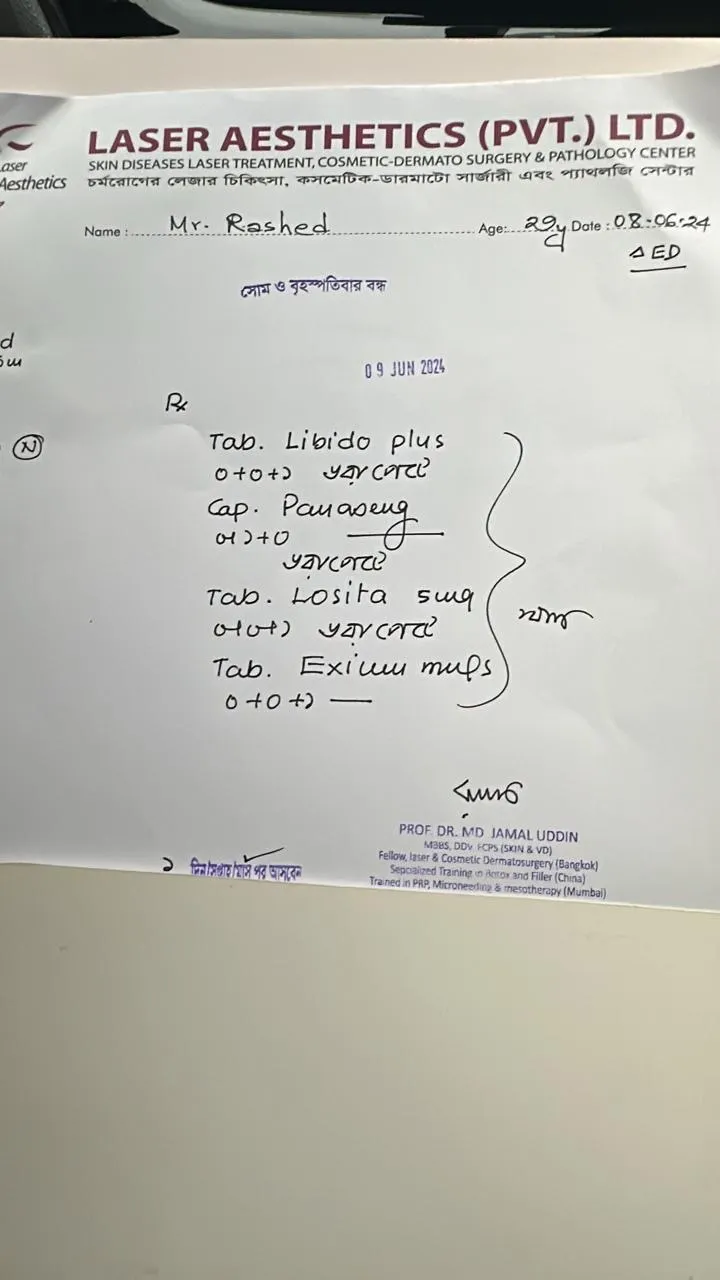 LASER AESTHETICS (PVT.) LTD.
SKIN DISEASES LASER TREATMENT, COSMETIC-DERMATO SURGERY & PATHOLOGY CENTER
চর্মরোগের লেজার চিকিৎসা, কসমেটিক-ডারমাটো সার্জারী এবং প্যাথলজি সেন্টার
Laser
Aesthetics
Name : Mr. Rashed Age: 29y Date : 08-06-24
Δ ED
সোম ও বৃহস্পতিবার বন্ধ
09 JUN 2024
Rx
N
Tab. Libido plus
০+০+১ ভরাপেটে
Cap. Panaseng
০+১+০
ভরাপেটে
Tab. Losita 5mg
০+০+১ ভরাপেটে
Tab. Exium mups
০+০+১ —
PROF. DR. MD JAMAL UDDIN
MBBS, DDV, FCPS (SKIN & VD)
Fellow, laser & Cosmetic Dermatosurgery (Bangkok)
Sepcialized Training in Botox and Filler (China)
Trained in PRP, Microneeding & mesotherapy (Mumbai)
১ দিন/সপ্তাহ/মাস পর আসবেন